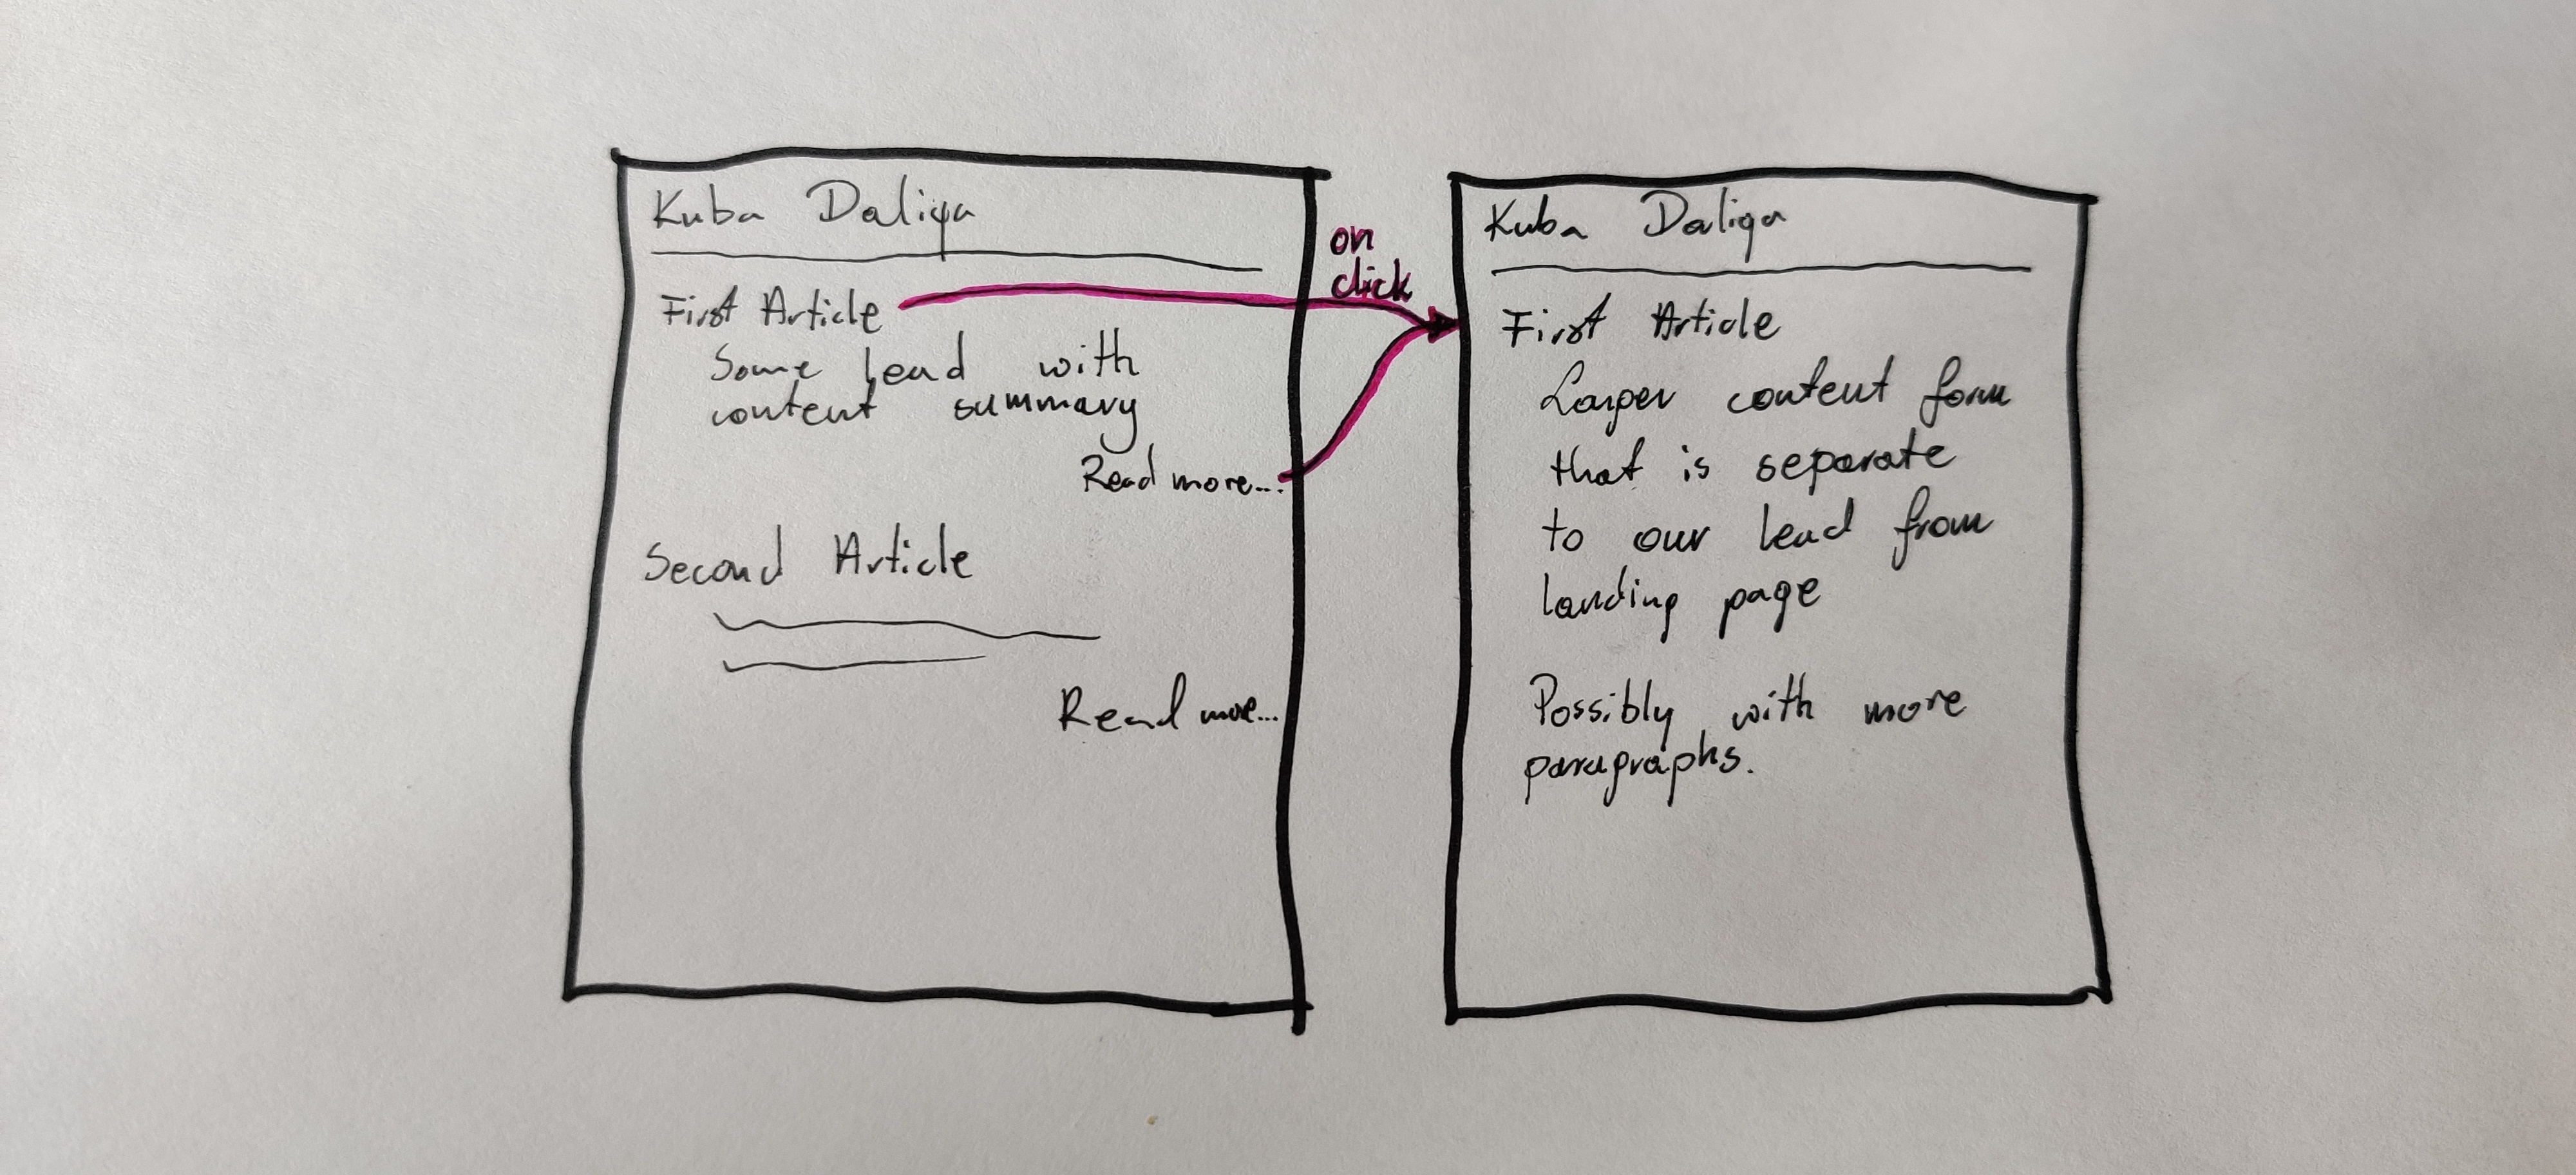 Kuba Daliga
First Article
Some lead with
content summary
Read more...
Second Article
Read more...
on
click
Kuba Daliga
First Article
Larger content form
that is separate
to our lead from
landing page
Possibly with more
paragraphs.